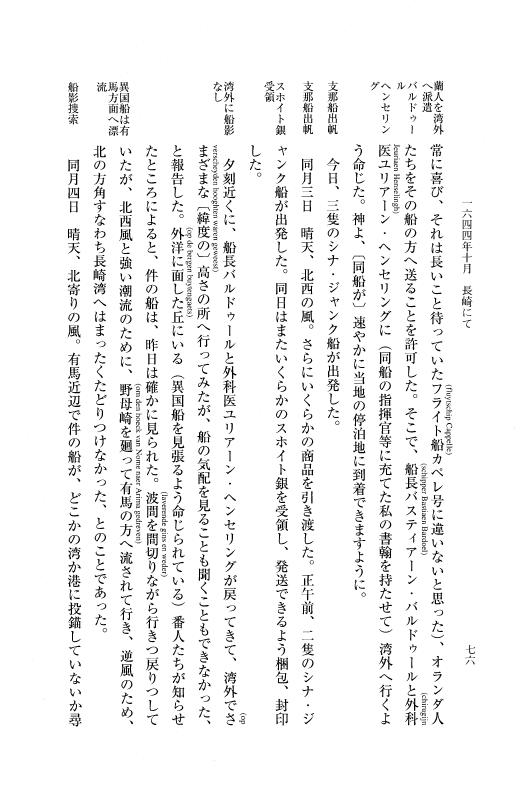 一六四四年十月　長崎にて
七六
蘭人を湾外
へ派遣
バルドゥー
ル
ヘンセリン
グ
常に喜び、それは長いこと待っていたフライト船カペレ号に違いないと思った)、オランダ人
(fluytschip Cappelle)
たちをその船の方へ送ることを許可した。そこで、船長バスティアーン・バルドゥールと外科
(schipper Bastiaen Bardoel)
(chirugijn
医ユリアーン・ヘンセリングに(同船の指揮官等に充てた私の書翰を持たせて)湾外へ行くよ
Jeuriaen Henselingh)
う命じた。神よ、〔同船が〕速やかに当地の停泊地に到着できますように。
支那船出帆
今日、三隻のシナ・ジャンク船が出発した。
支那船出帆
同月三日　晴天、北西の風。さらにいくらかの商品を引き渡した。正午前、二隻のシナ・ジ
スホイト銀
受領
ャンク船が出発した。同日はまたいくらかのスホイト銀を受領し、発送できるよう梱包、封印
した。
湾外に船影
なし
夕刻近くに、船長バルドゥールと外科医ユリアーン・ヘンセリングが戻ってきて、湾外でさ
(op
まざまな〔緯度の〕高さの所へ行ってみたが、船の気配を見ることも聞くこともできなかった、
verscheyden hooghten waren geweest)
と報告した。外洋に面した丘にいる(異国船を見張るよう命じられている)番人たちが知らせ
(op de bergen buytengaets)
たところによると、件の船は、昨日は確かに見られた。波間を間切りながら行きつ戻りつして
(laverende gins en weder)
異国船は有
馬方面へ漂
流
いたが、北西風と強い潮流のために、野母崎を廻って有馬の方へ流されて行き、逆風のため、
(om den hoeck van Nome naer Arima gedreven)
北の方角すなわち長崎湾へはまったくたどりつけなかった、とのことであった。
船影捜索
同月四日　晴天、北寄りの風。有馬近辺で件の船が、どこかの湾か港に投錨していないか尋